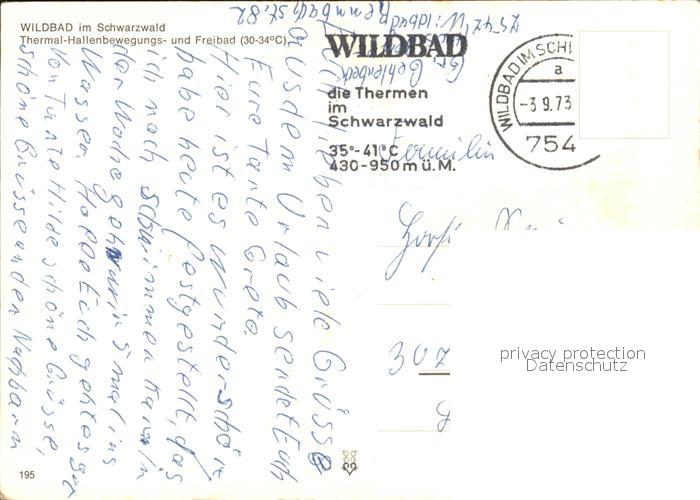 WILDBAD im Schwarzwald
Thermal-Hallenbewegungs- und Freibad (30-34°C)
Ihr Lieben viele Grüsse
aus dem Urlaub sendet Euch
Eure Tante Greta
Hier ist es wunderschön
habe heute festgestellt, das
ich noch schwimmen kann in
der Woche gehn wir 5 mal ins
Wasser. Hoffe Euch geht es gut
von Tante Hilde schöne Grüsse,
schöne Grüsse an den Nachbarn
7547 Wildbad
WILDBAD
die Thermen
im
Schwarzwald
35°-41°C
430-950 m ü.M.
WILDBAD IM SCH
a
-3.9.73
754
Familie
307
privacy protection
Datenschutz
195